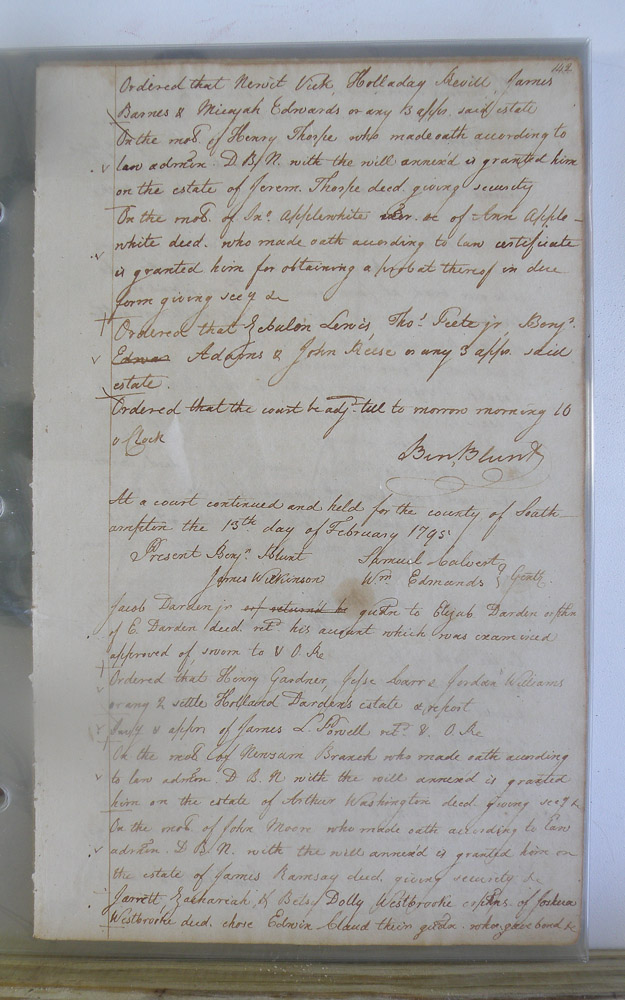 142
Ordered that Newit Vick, Holladay Revill, James
Barnes & Micajah Edwards or any 3 appr. said estate
On the mot. of Henry Thorpe who made oath according to
law admrn. D B N. with the will annex'd is granted him
on the estate of Jerem. Thorpe deed. giving security
On the mot. of Jno. Applewhite exr. &c of Ann Apple-
white deed. who made oath according to law certificate
is granted him for obtaining a probat thereof in due
form giving secy &c
Ordered that Zebulon Lewis, Thos. Peete jr, Benjn.
Edwar Adams & John Reese or any 3 appr. said
estate.
Ordered that the court be adj. till to morrow morning 10
o Clock
Ben, Blunt
At a court continued and held for the county of South
ampton the 13th day of February 1795
Present Benjn. Blunt Samuel Calvert
James Wilkinson Wm Edmunds Gent.
Jacob Darden jr gudn to Elizab. Darden orphn
of E. Darden deed. ret. his account which was examined
approved of, sworn to & O. Re
Ordered that Henry Gardner, Jesse Carr & Jordan Williams
or any 2 settle Holland Dardens estate & report
Invy & appr. of James L. Powell ret. & O. Re
On the mot. of Newsum Branch who made oath according
to law admrn. D. B. N with the will annex'd is granted
him on the estate of Arthur Washington deed. giving secy &c
On the mot. of John Moore who made oath according to law
admrn. D B N. with the will annex'd is granted him on
the estate of James Ramsay deed. giving security &c
Jarrett, Zachariah, & Betsy Dolly Westbrooke orphns. of Joshua
Westbrooke deed. chose Edwin Claud their guidn. who gave bond &c